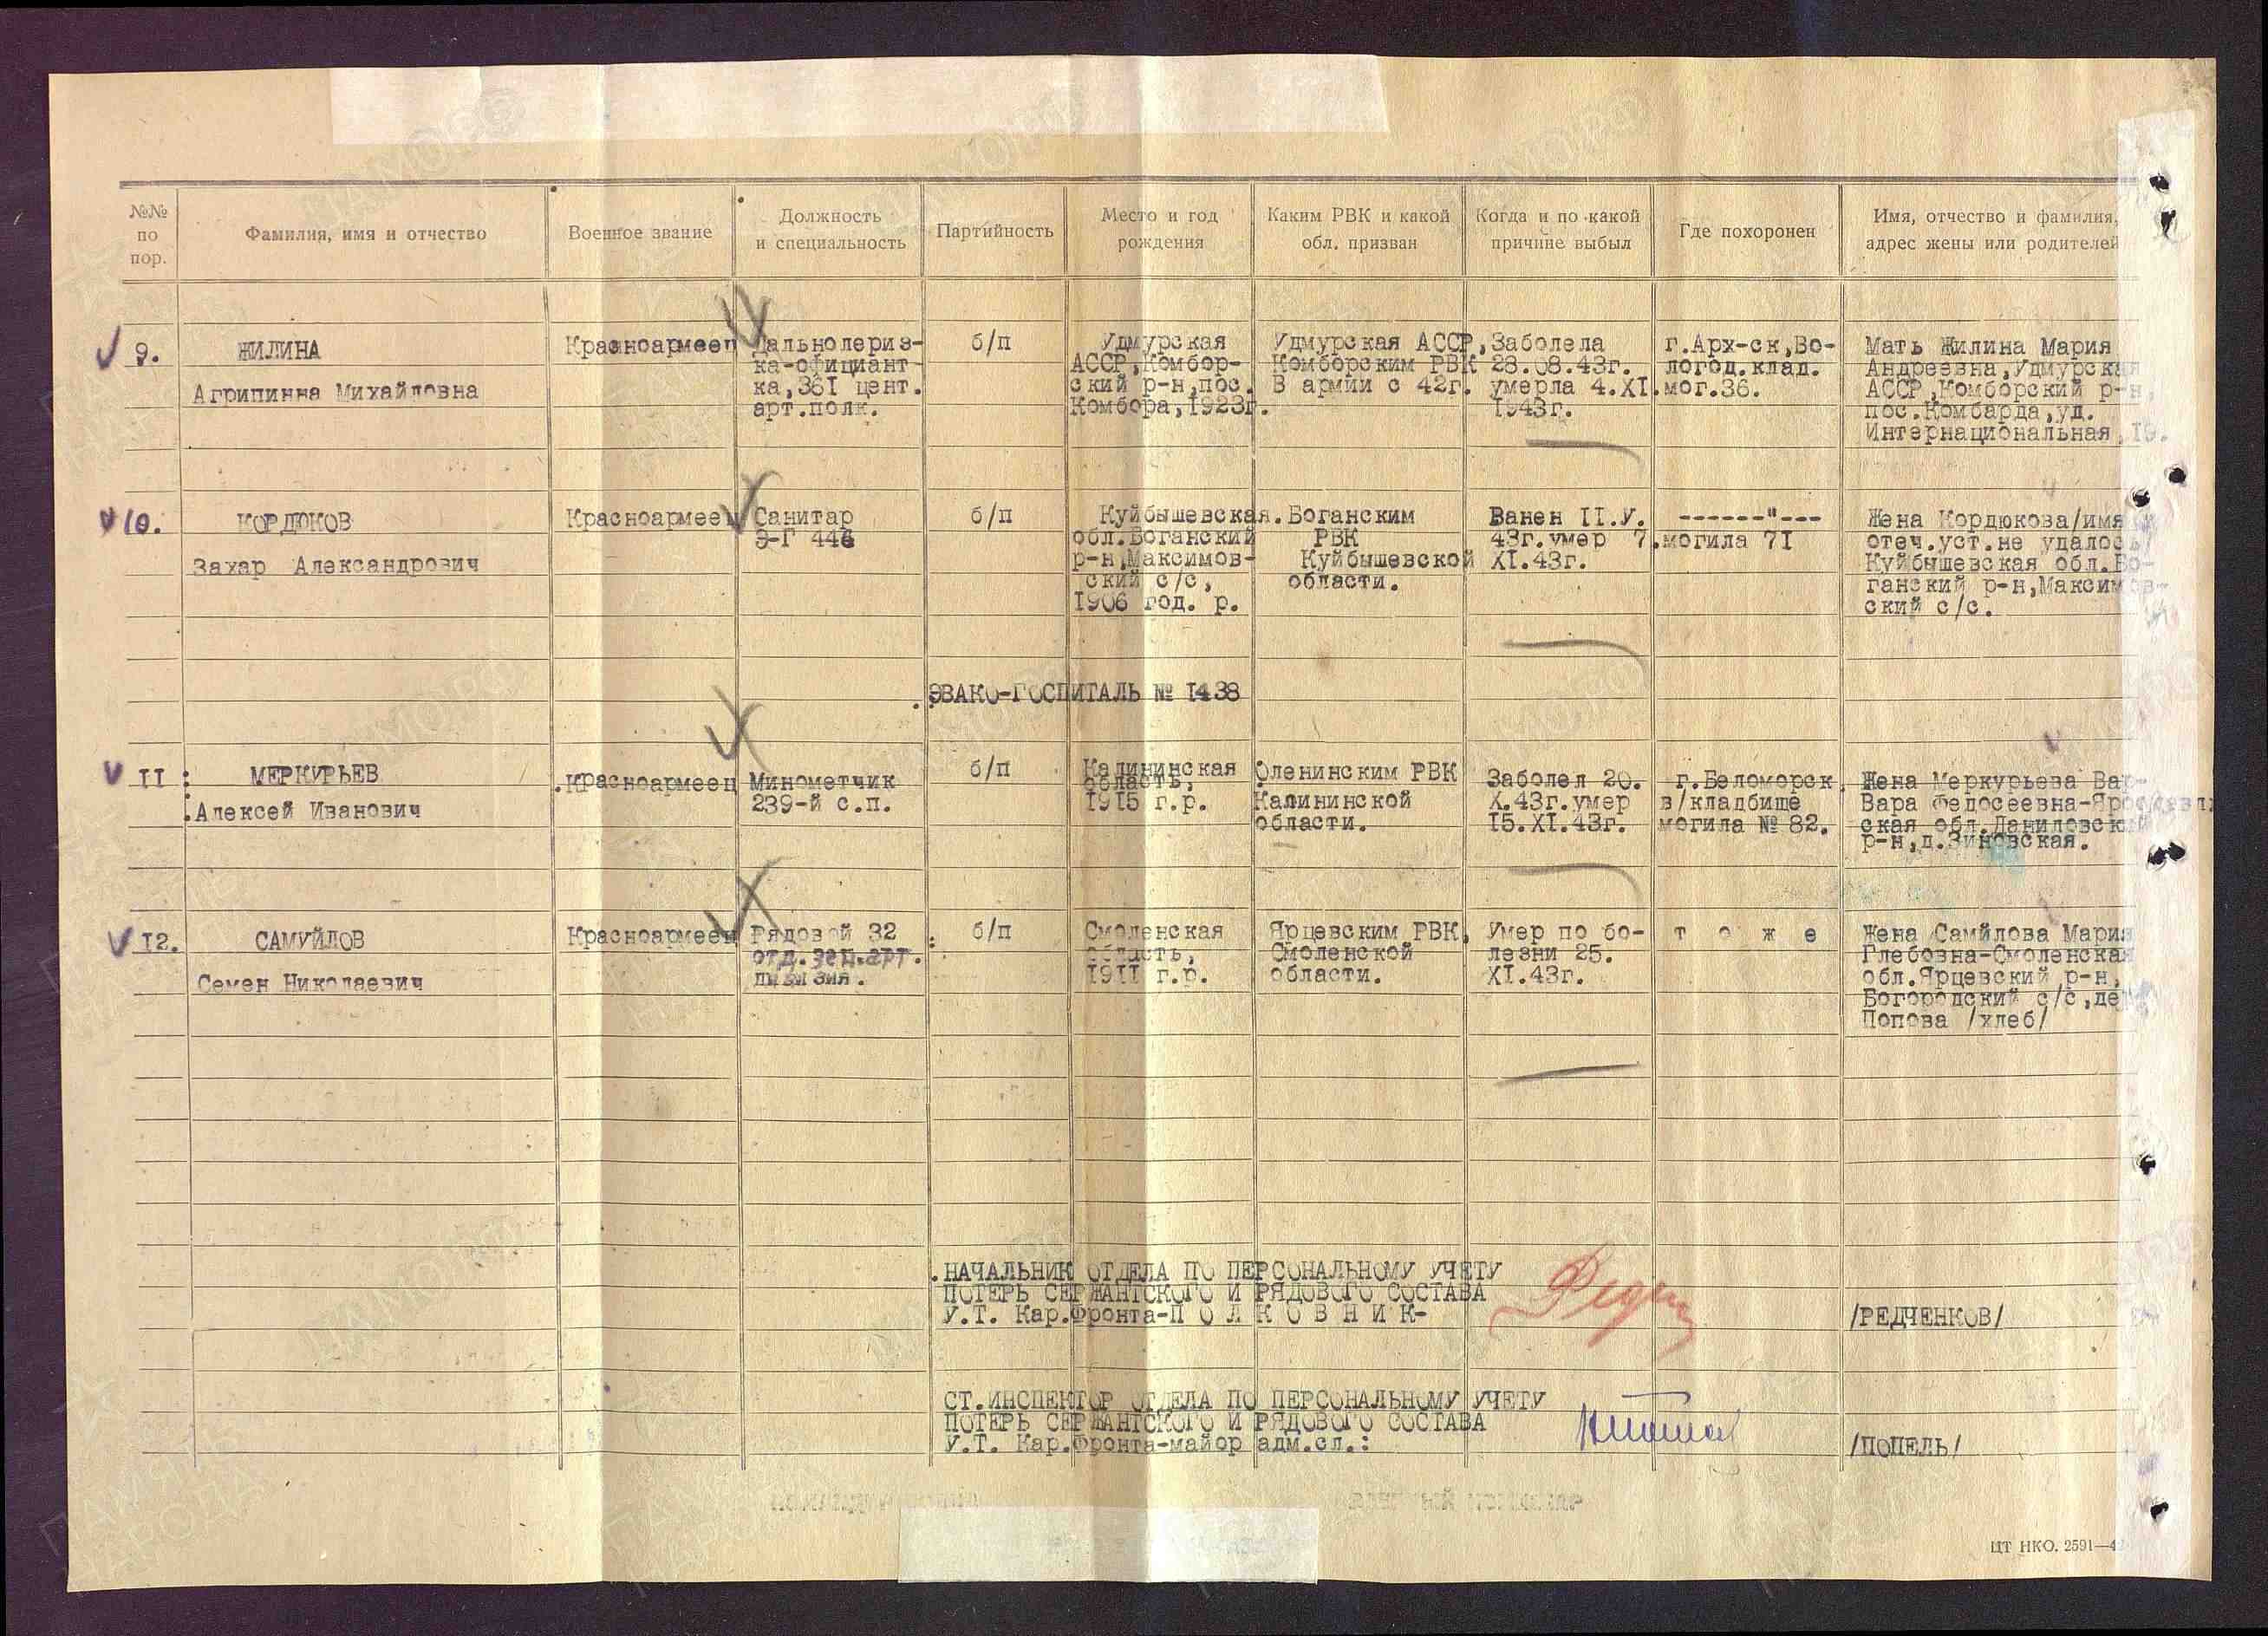 №№ по пор.
Фамилия, имя и отчество
Военное звание
Должность и специальность
Партийность
Место и год рождения
Каким РВК и какой обл. призван
Когда и по какой причине выбыл
Где похоронен
Имя, отчество и фамилия, адрес жены или родителей
9.
ЖИЛИНА
Агрипинна Михайловна
Красноармеец
Дальнопериз-
ка-официант
ка,361 цент.
арт.полк.
б/п
Удмурская
АССР,Комбор-
ский р-н,пос.
Комбора,1923г.
Удмурская АССР,
Комборским РВК
В армии с 42г.
Заболела
28.08.43г.
умерла 4.XI.
1943г.
г.Арх-ск,Во-
логод.клад.
мог.36.
Мать Жилина Мария
Андреевна,Удмурская
АССР,Комборский р-н,
пос.Комбарда,ул.
Интернациональная,19.
10.
КОРДЮКОВ
Захар Александрович
Красноармеец
Санитар
Э-Г 446
б/п
Куйбышевская.
обл.Боганский
р-н,Максимов-
ский с/с,
1906 год. р.
Боганским
РВК
Куйбышевской
области.
Ванен II.У.
43г.умер 7.
XI.43г.
------"---
могила 71
Жена Кордюкова/имя
отеч.уст.не удалось/
Куйбышевская обл.Бо-
ганский р-н,Максимов-
ский с/с.
ЭВАКО-ГОСПИТАЛЬ № 1438
II
МЕРКУРЬЕВ
Алексей Иванович
Красноармеец
Минометчик
239-й с.п.
б/п
Калининская
область,
1915 г.р.
Оленинским РВК
Калининской
области.
Заболел 20.
X.43г.умер
15.XI.43г.
г.Беломорск
в/кладбище
могила № 82.
Жена Меркурьева Вар-
Вара Федосеевна-Ярославл.
ская обл.Даниловский
р-н,д.Зиновская.
12.
САМУЙЛОВ
Семен Николаевич
Красноармеец
Рядовой 32
отд.зен.арт.
дивизия.
б/п
Смоленская
область,
1911 г.р.
Ярцевским РВК,
Смоленской
области.
Умер по бо-
лезни 25.
XI.43г.
т о ж е
Жена Самйлова Мария
Глебовна-Смоленская
обл.Ярцевский р-н,
Богородский с/с,де
Попова /хлеб/
НАЧАЛЬНИК ОТДЕЛА ПО ПЕРСОНАЛЬНОМУ УЧЕТУ
ПОТЕРЬ СЕРЖАНТСКОГО И РЯДОВОГО СОСТАВА
У.Т. Кар.Фронта-П О Л К О В Н И К-
/РЕДЧЕНКОВ/
СТ.ИНСПЕКТОР ОТДЕЛА ПО ПЕРСОНАЛЬНОМУ УЧЕТУ
ПОТЕРЬ СЕРЖАНТСКОГО И РЯДОВОГО СОСТАВА
У.Т. Кар.Фронта-майор адм.сл.:
/ПОПЕЛЬ/
ЦТ НКО. 2591—4